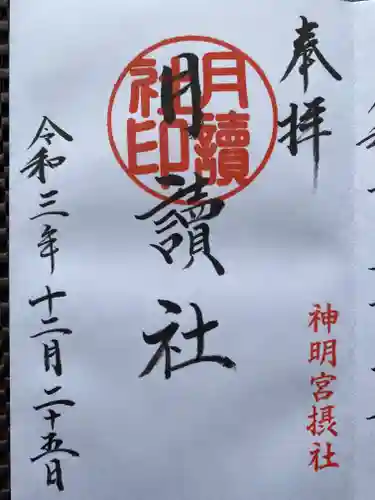 奉拝
神明宮摂社
月讀社
月讀社印
令和三年十二月二十五日